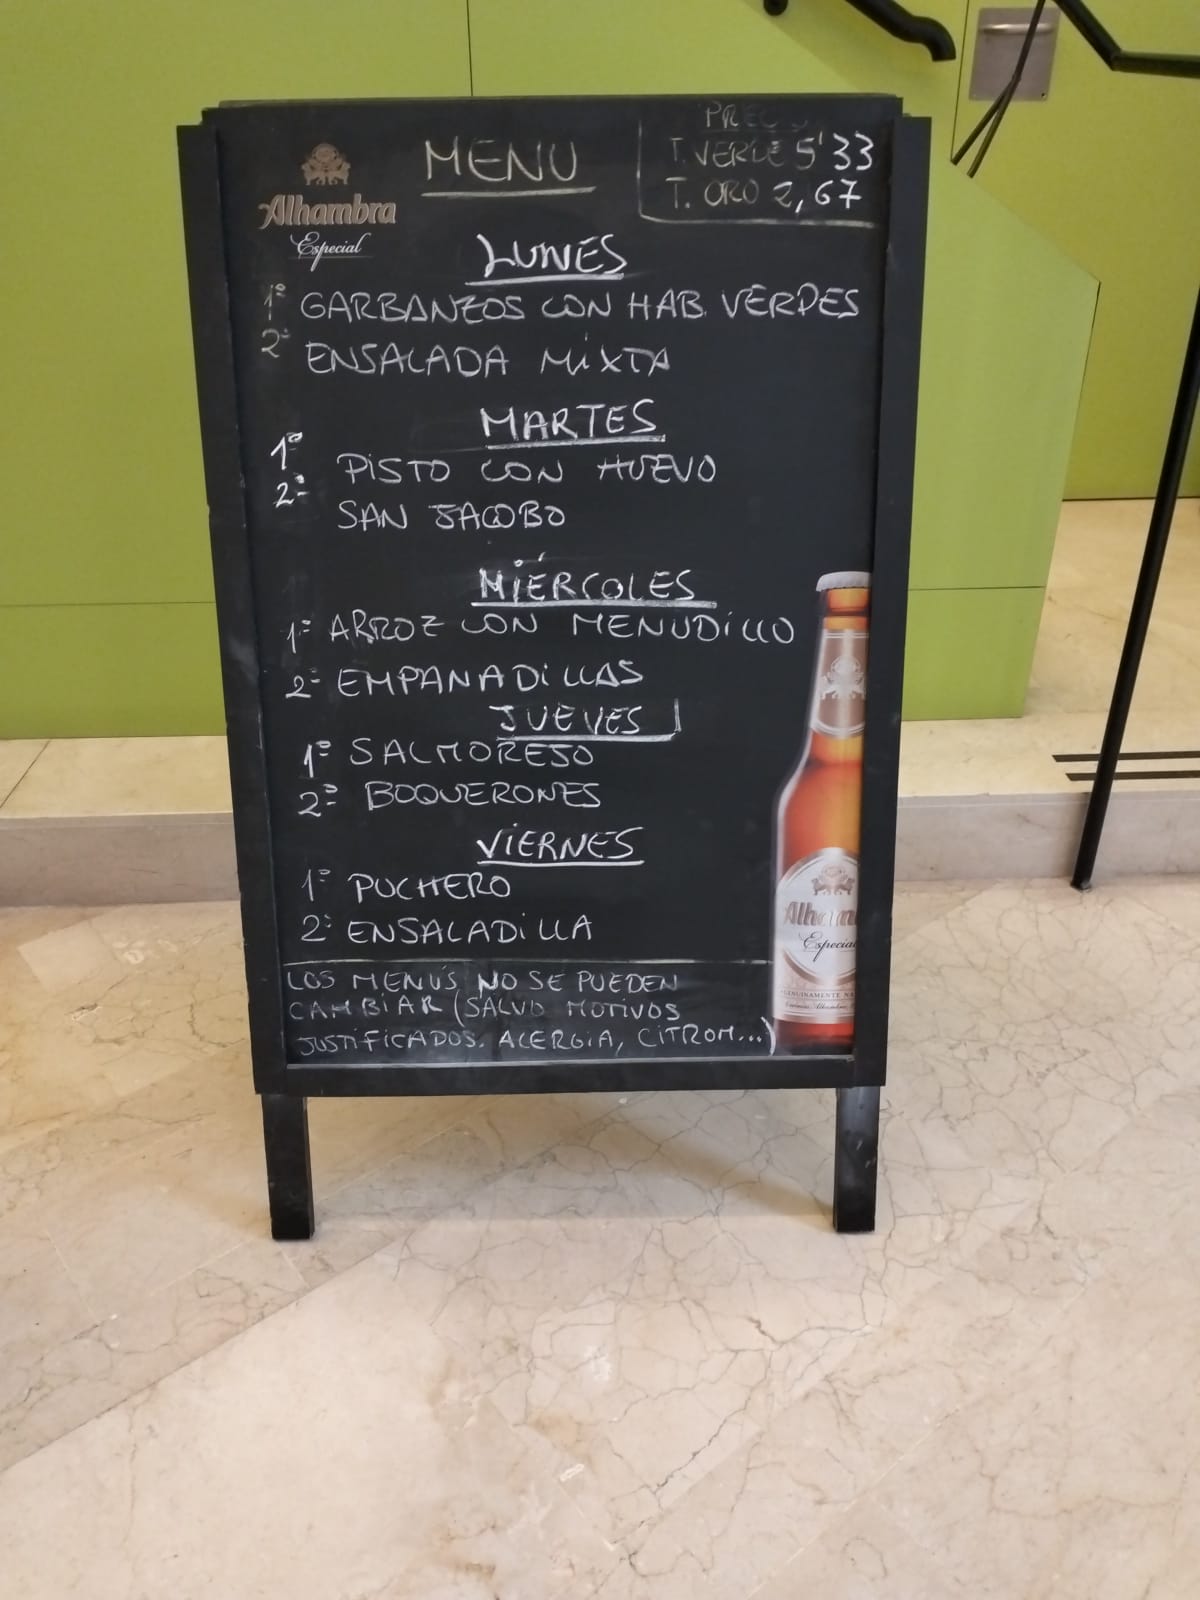 MENU
T. VERDE 5'33
T. ORO 2,67
Alhambra
Especial
LUNES
1º GARBANZOS CON HAB. VERDES
2º ENSALADA MIXTA
MARTES
1º PISTO CON HUEVO
2º SAN JACOBO
MIÉRCOLES
1º ARROZ CON MENUDILLO
2º EMPANADILLAS
JUEVES
1º SALMOREJO
2º BOQUERONES
VIERNES
1º PUCHERO
2º ENSALADILLA
LOS MENÚS NO SE PUEDEN
CAMBIAR (SALVO MOTIVOS
JUSTIFICADOS. ALERGIA, CITROM...)
Especial